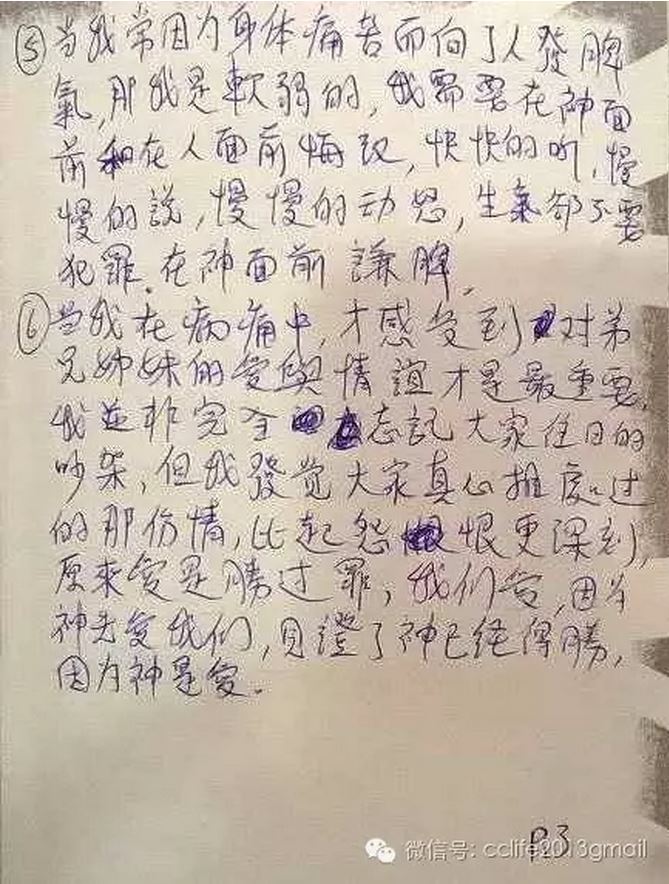 ⑤当我常因为身体痛苦而向了人發脾
氣,那我是軟弱的,我需要在神面
前和在人面前悔改,快快的听,慢
慢的說,慢慢的动怒,生氣卻不要
犯罪.在神面前謙脾.
⑥当我在病痛中,才感受到对弟
兄姊妹的愛與情誼才是最重要.
我並非完全忘記大家往日的
吵架,但我發觉大家真心推度过
的那份情,比起怨恨更深刻,
原來愛是勝过罪,我们愛,因为
神先愛我们,見證了神已经得勝,
因为神是愛.
P.3
微信号: cclife2013gmail